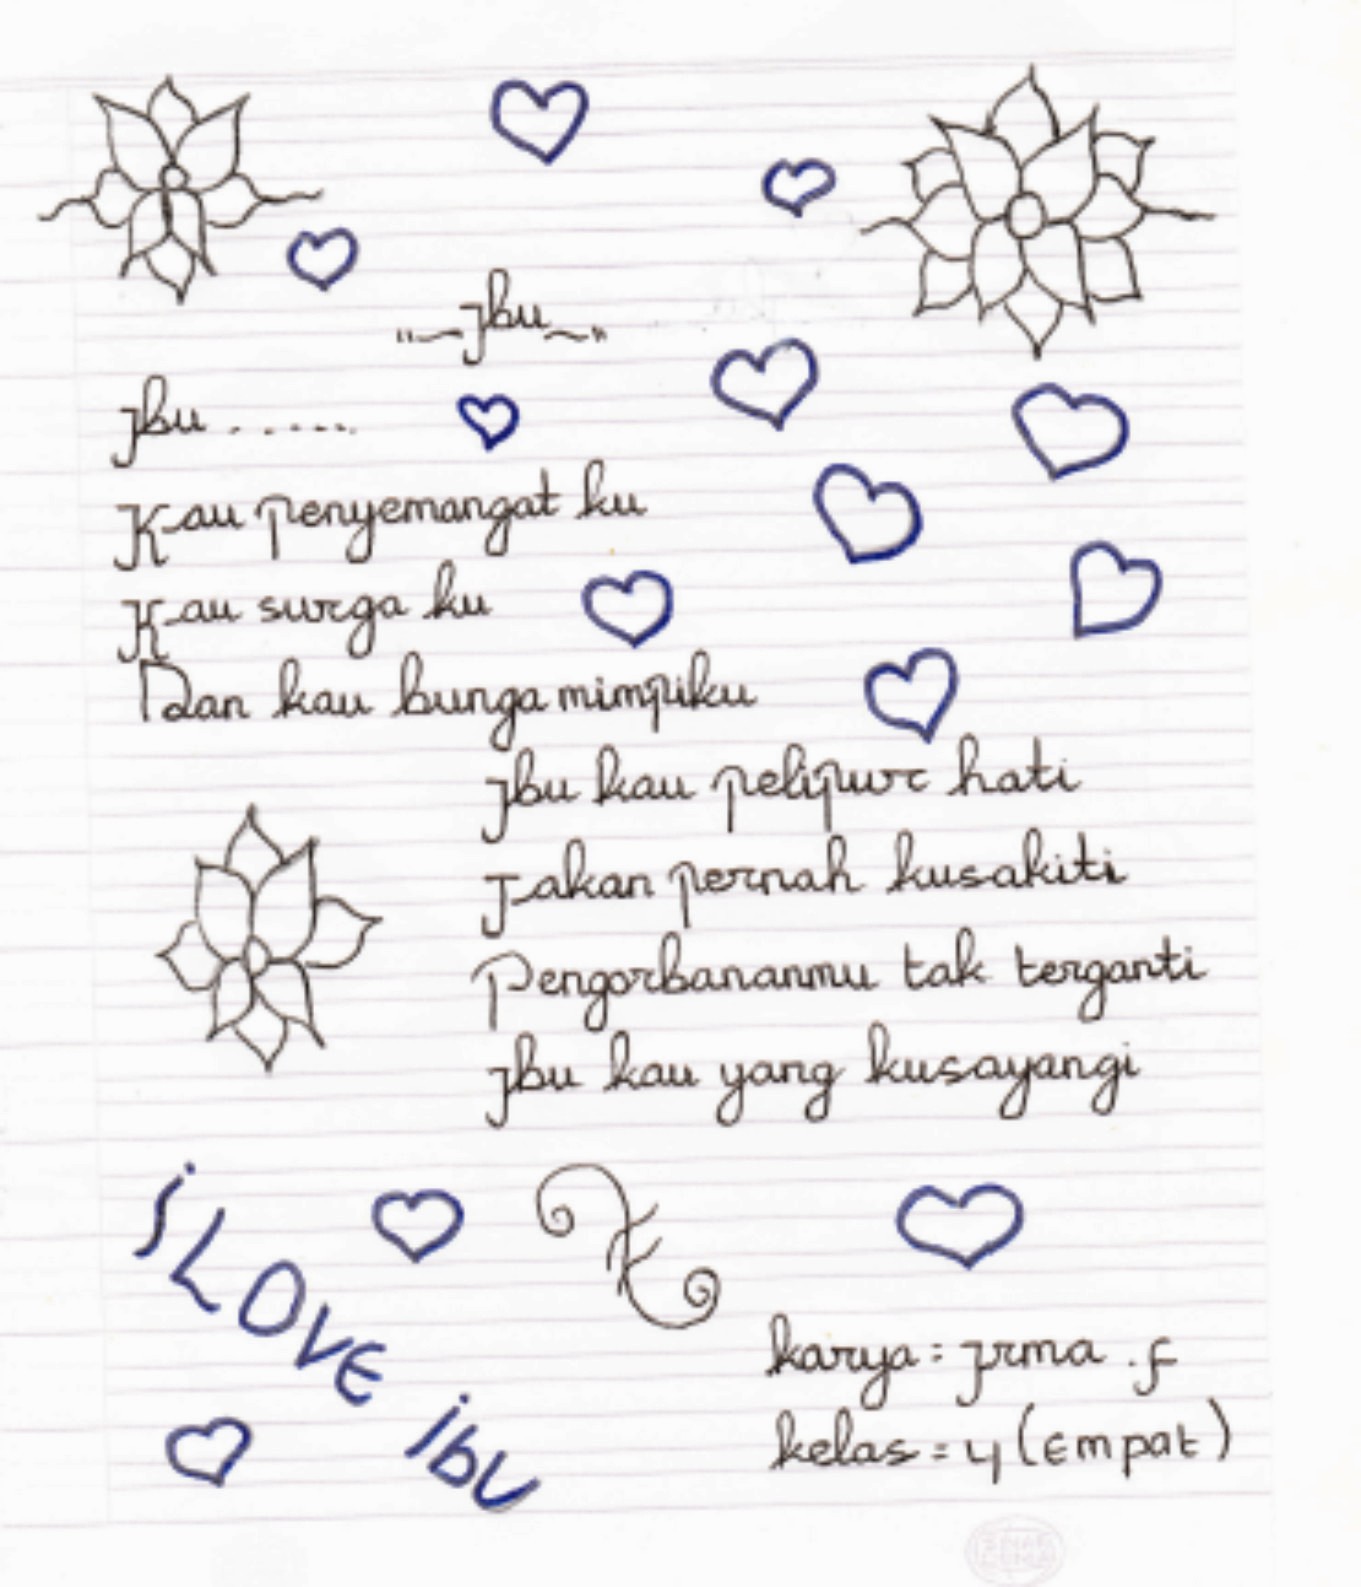 "~Ibu~"
Ibu . . . . . .
Kau penyemangat ku
Kau surga ku
Dan kau bunga mimpiku
Ibu kau pelipur hati
Takan pernah kusakiti
Pengorbananmu tak terganti
Ibu kau yang kusayangi
i LOVE ibu
karya : Irma . F
kelas = 4 (Empat)